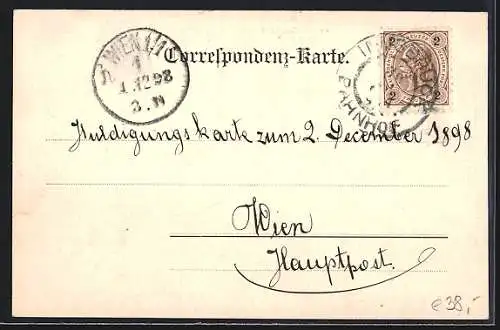 WIEN 1/1
1
1.12.98
3.N
Correspondenz-Karte.
2 2
INNSBRUCK
2 2
Huldigungskarte zum 2. December 1898
Wien
Hauptpost.
€ 38,-